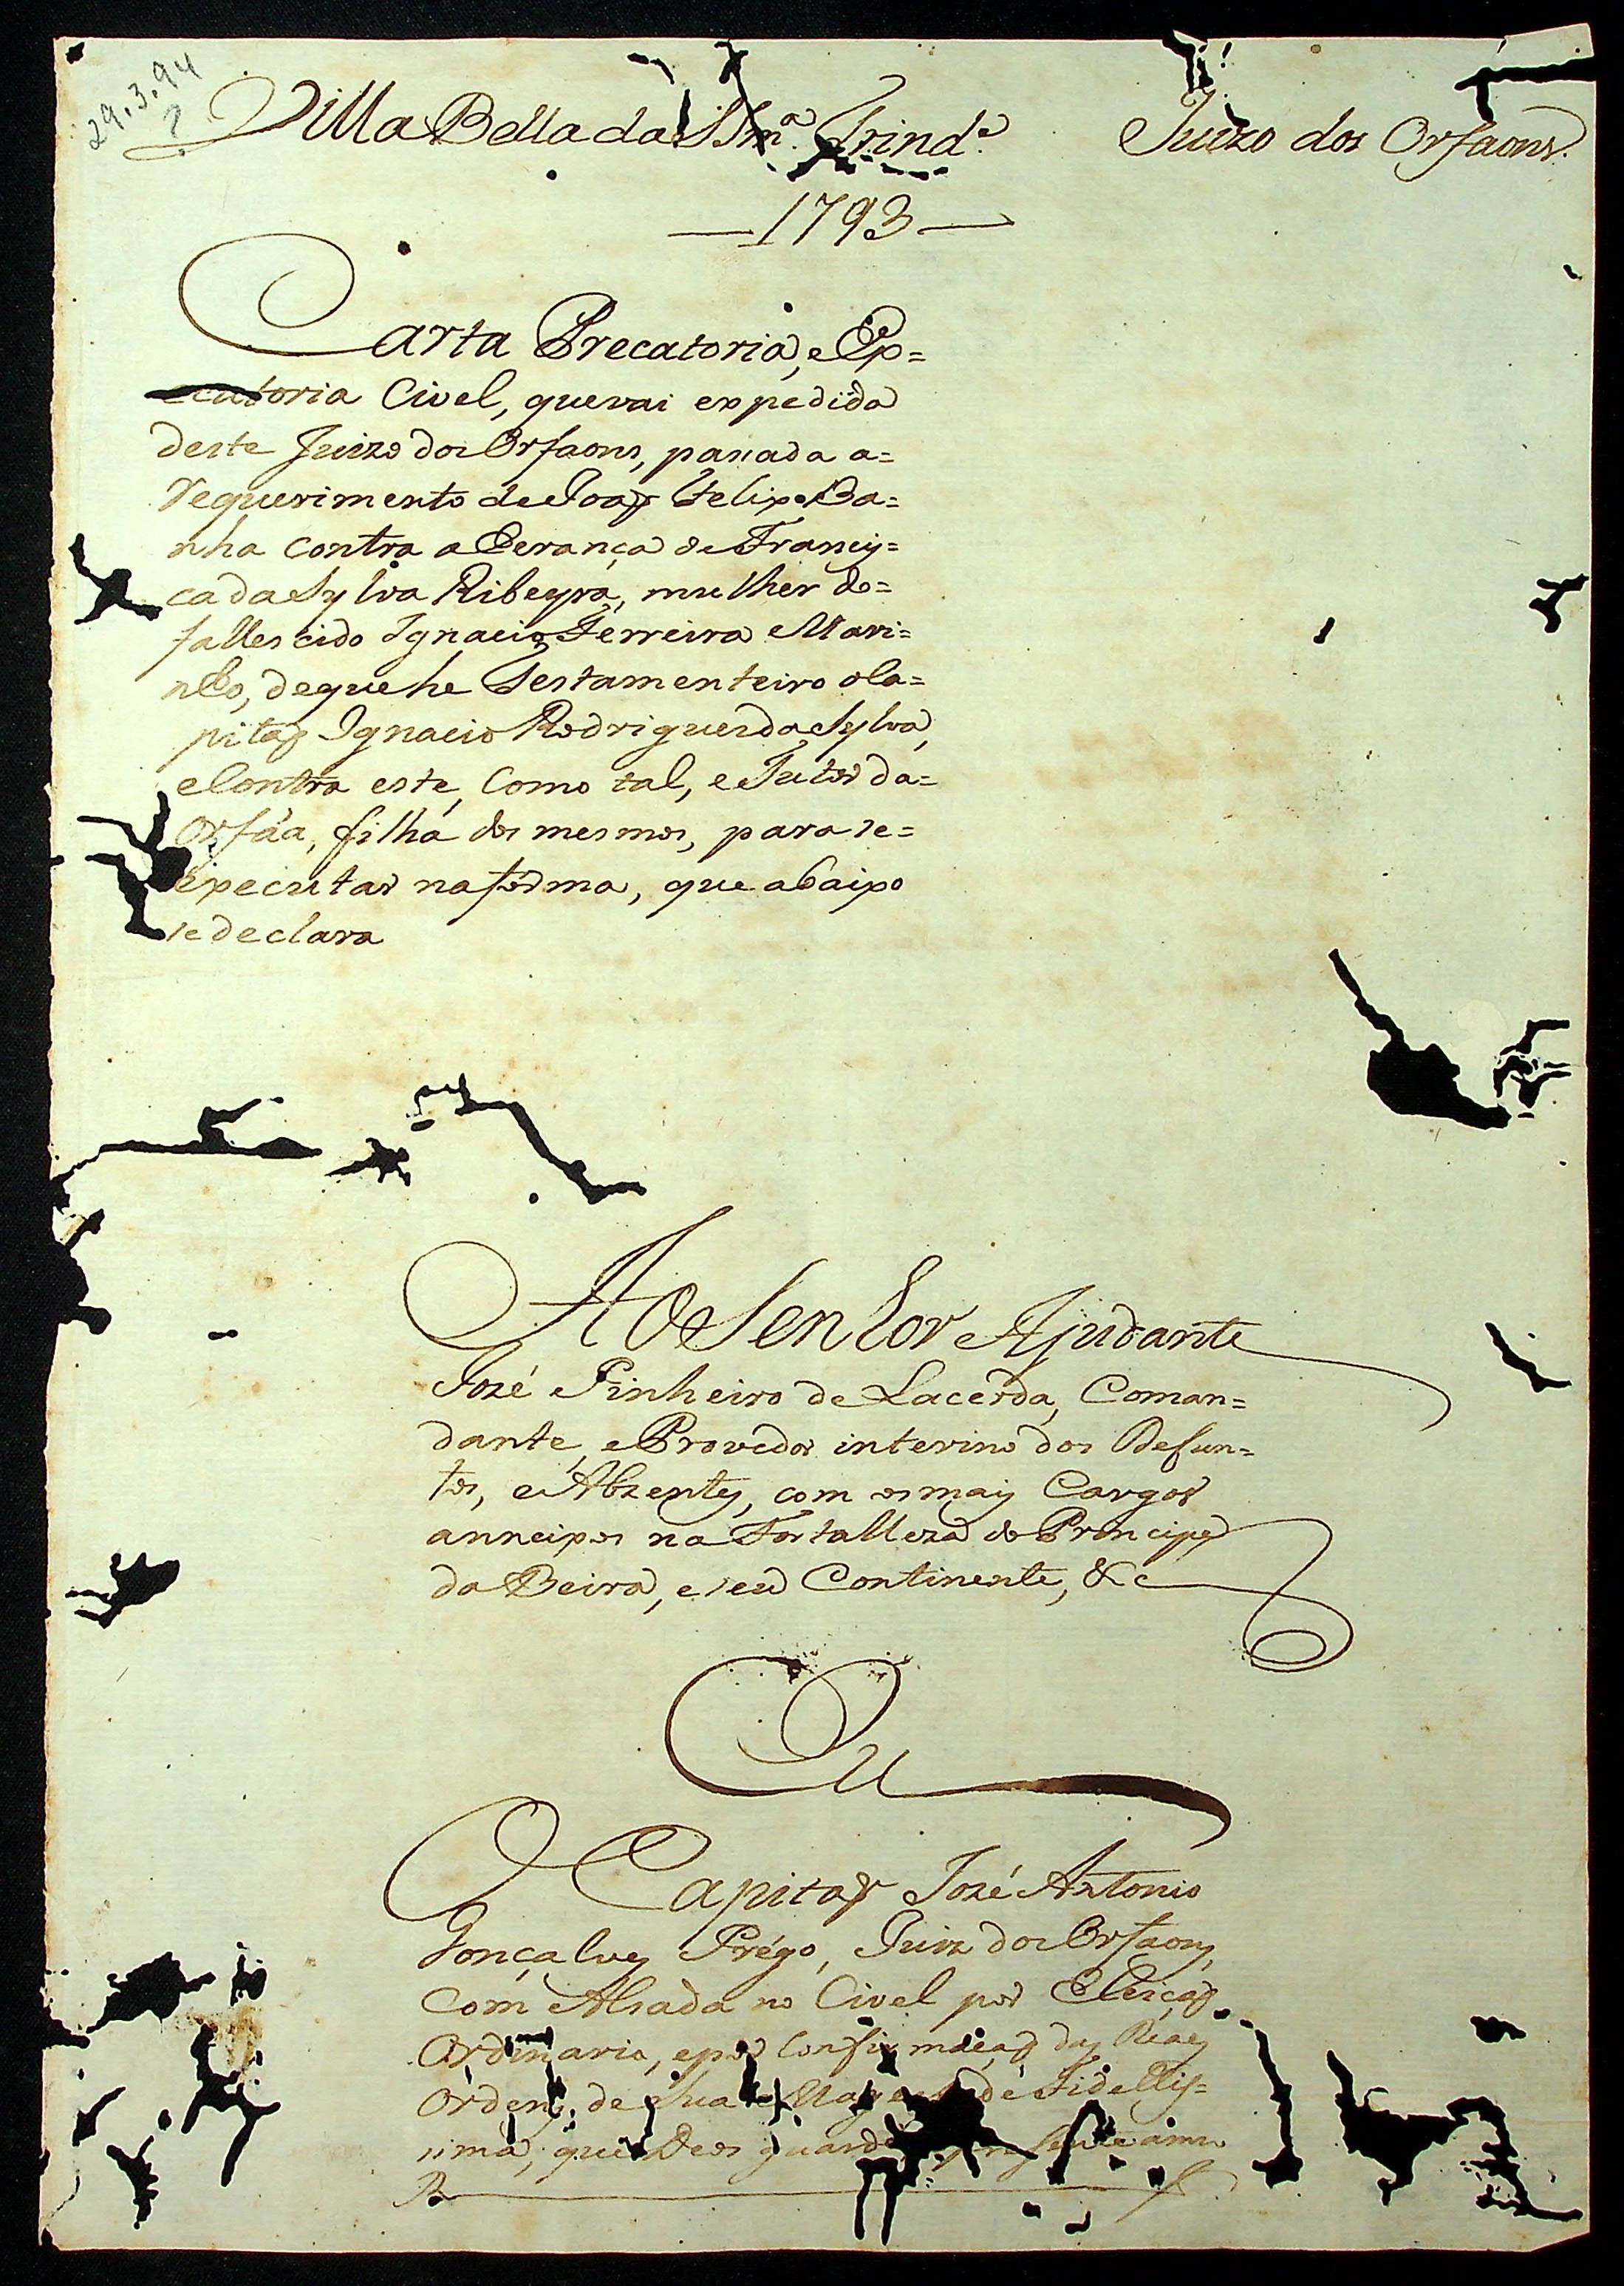 29.3.94
Villa Bella da SSm.ª Trind.e Juizo dos Orfaons.
—1793—
Carta Precatoria, e Ex=
ecutoria Civel, que vai expedida
deste Juizo dos Orfaons, passada a=
requerimento de Joaõ Felix Ba=
nha contra a Herança de Francis=
ca da Sylva Ribeyra, mulher do=
fallescido Ignacio Ferreira Mari=
nho, de que he Testamenteiro o Ca=
pitaõ Ignacio Rodrigues da Sylva,
e Contra este, Como tal, e Tutor da=
Orfãa, filha dos mesmos, para se=
executar na fórma, que abaixo
se declara
Ao Senhor Ajudante
José Pinheiro de Lacerda, Coman=
dante, e Provedor interino dos Defun=
tos, e Abzentes, com os mais Cargos
anneixos na Fortalleza do Principe
da Beira, e seu Continente, &c
Eu
O Capitaõ José Antonio
Gonçalves Prégo, Juiz dos Orfaons,
Com Alsada no Civel por Eleiçaõ
Ordinaria, e por Confirmaçaõ das Reaes
Ordens de Sua Magestade Fidellis=
sima, que Deos guarde